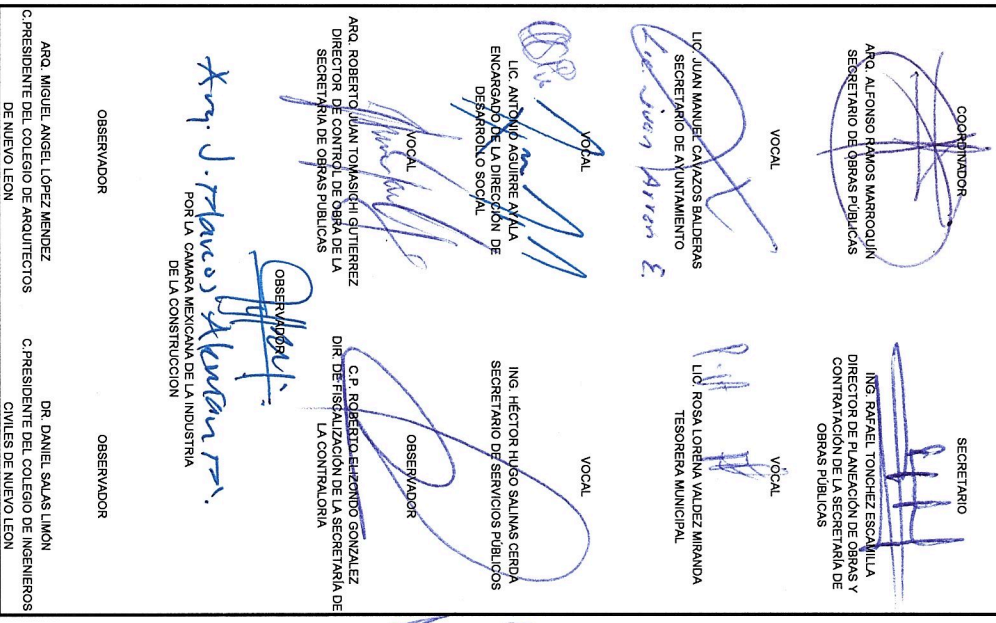 COORDINADOR
ARQ. ALFONSO RAMOS MARROQUÍN
SECRETARIO DE OBRAS PÚBLICAS
SECRETARIO
ING. RAFAEL TONCHEZ ESCAMILLA
DIRECTOR DE PLANEACIÓN DE OBRAS Y
CONTRATACIÓN DE LA SECRETARÍA DE
OBRAS PÚBLICAS
VOCAL
LIC. JUAN MANUEL CAVAZOS BALDERAS
SECRETARIO DE AYUNTAMIENTO
Lic. Juan Arron E.
VOCAL
LIC. ROSA LORENA VALDEZ MIRANDA
TESORERA MUNICIPAL
VOCAL
LIC. ANTONIO AGUIRRE AYALA
ENCARGADO DE LA DIRECCIÓN DE
DESARROLLO SOCIAL
VOCAL
ING. HÉCTOR HUGO SALINAS CERDA
SECRETARIO DE SERVICIOS PÚBLICOS
VOCAL
ARQ. ROBERTO JUAN TOMASICHI GUTIERREZ
DIRECTOR DE CONTROL DE OBRA DE LA
SECRETARIA DE OBRAS PÚBLICAS
OBSERVADOR
C.P. ROBERTO ELIZONDO GONZALEZ
DIR. DE FISCALIZACIÓN DE LA SECRETARÍA DE
LA CONTRALORIA
OBSERVADOR
Arq. J. Marcos
POR LA CAMARA MEXICANA DE LA INDUSTRIA
DE LA CONSTRUCCION
OBSERVADOR
ARQ. MIGUEL ANGEL LÓPEZ MENDEZ
C.PRESIDENTE DEL COLEGIO DE ARQUITECTOS
DE NUEVO LEON
OBSERVADOR
DR. DANIEL SALAS LIMÓN
C.PRESIDENTE DEL COLEGIO DE INGENIEROS
CIVILES DE NUEVO LEON